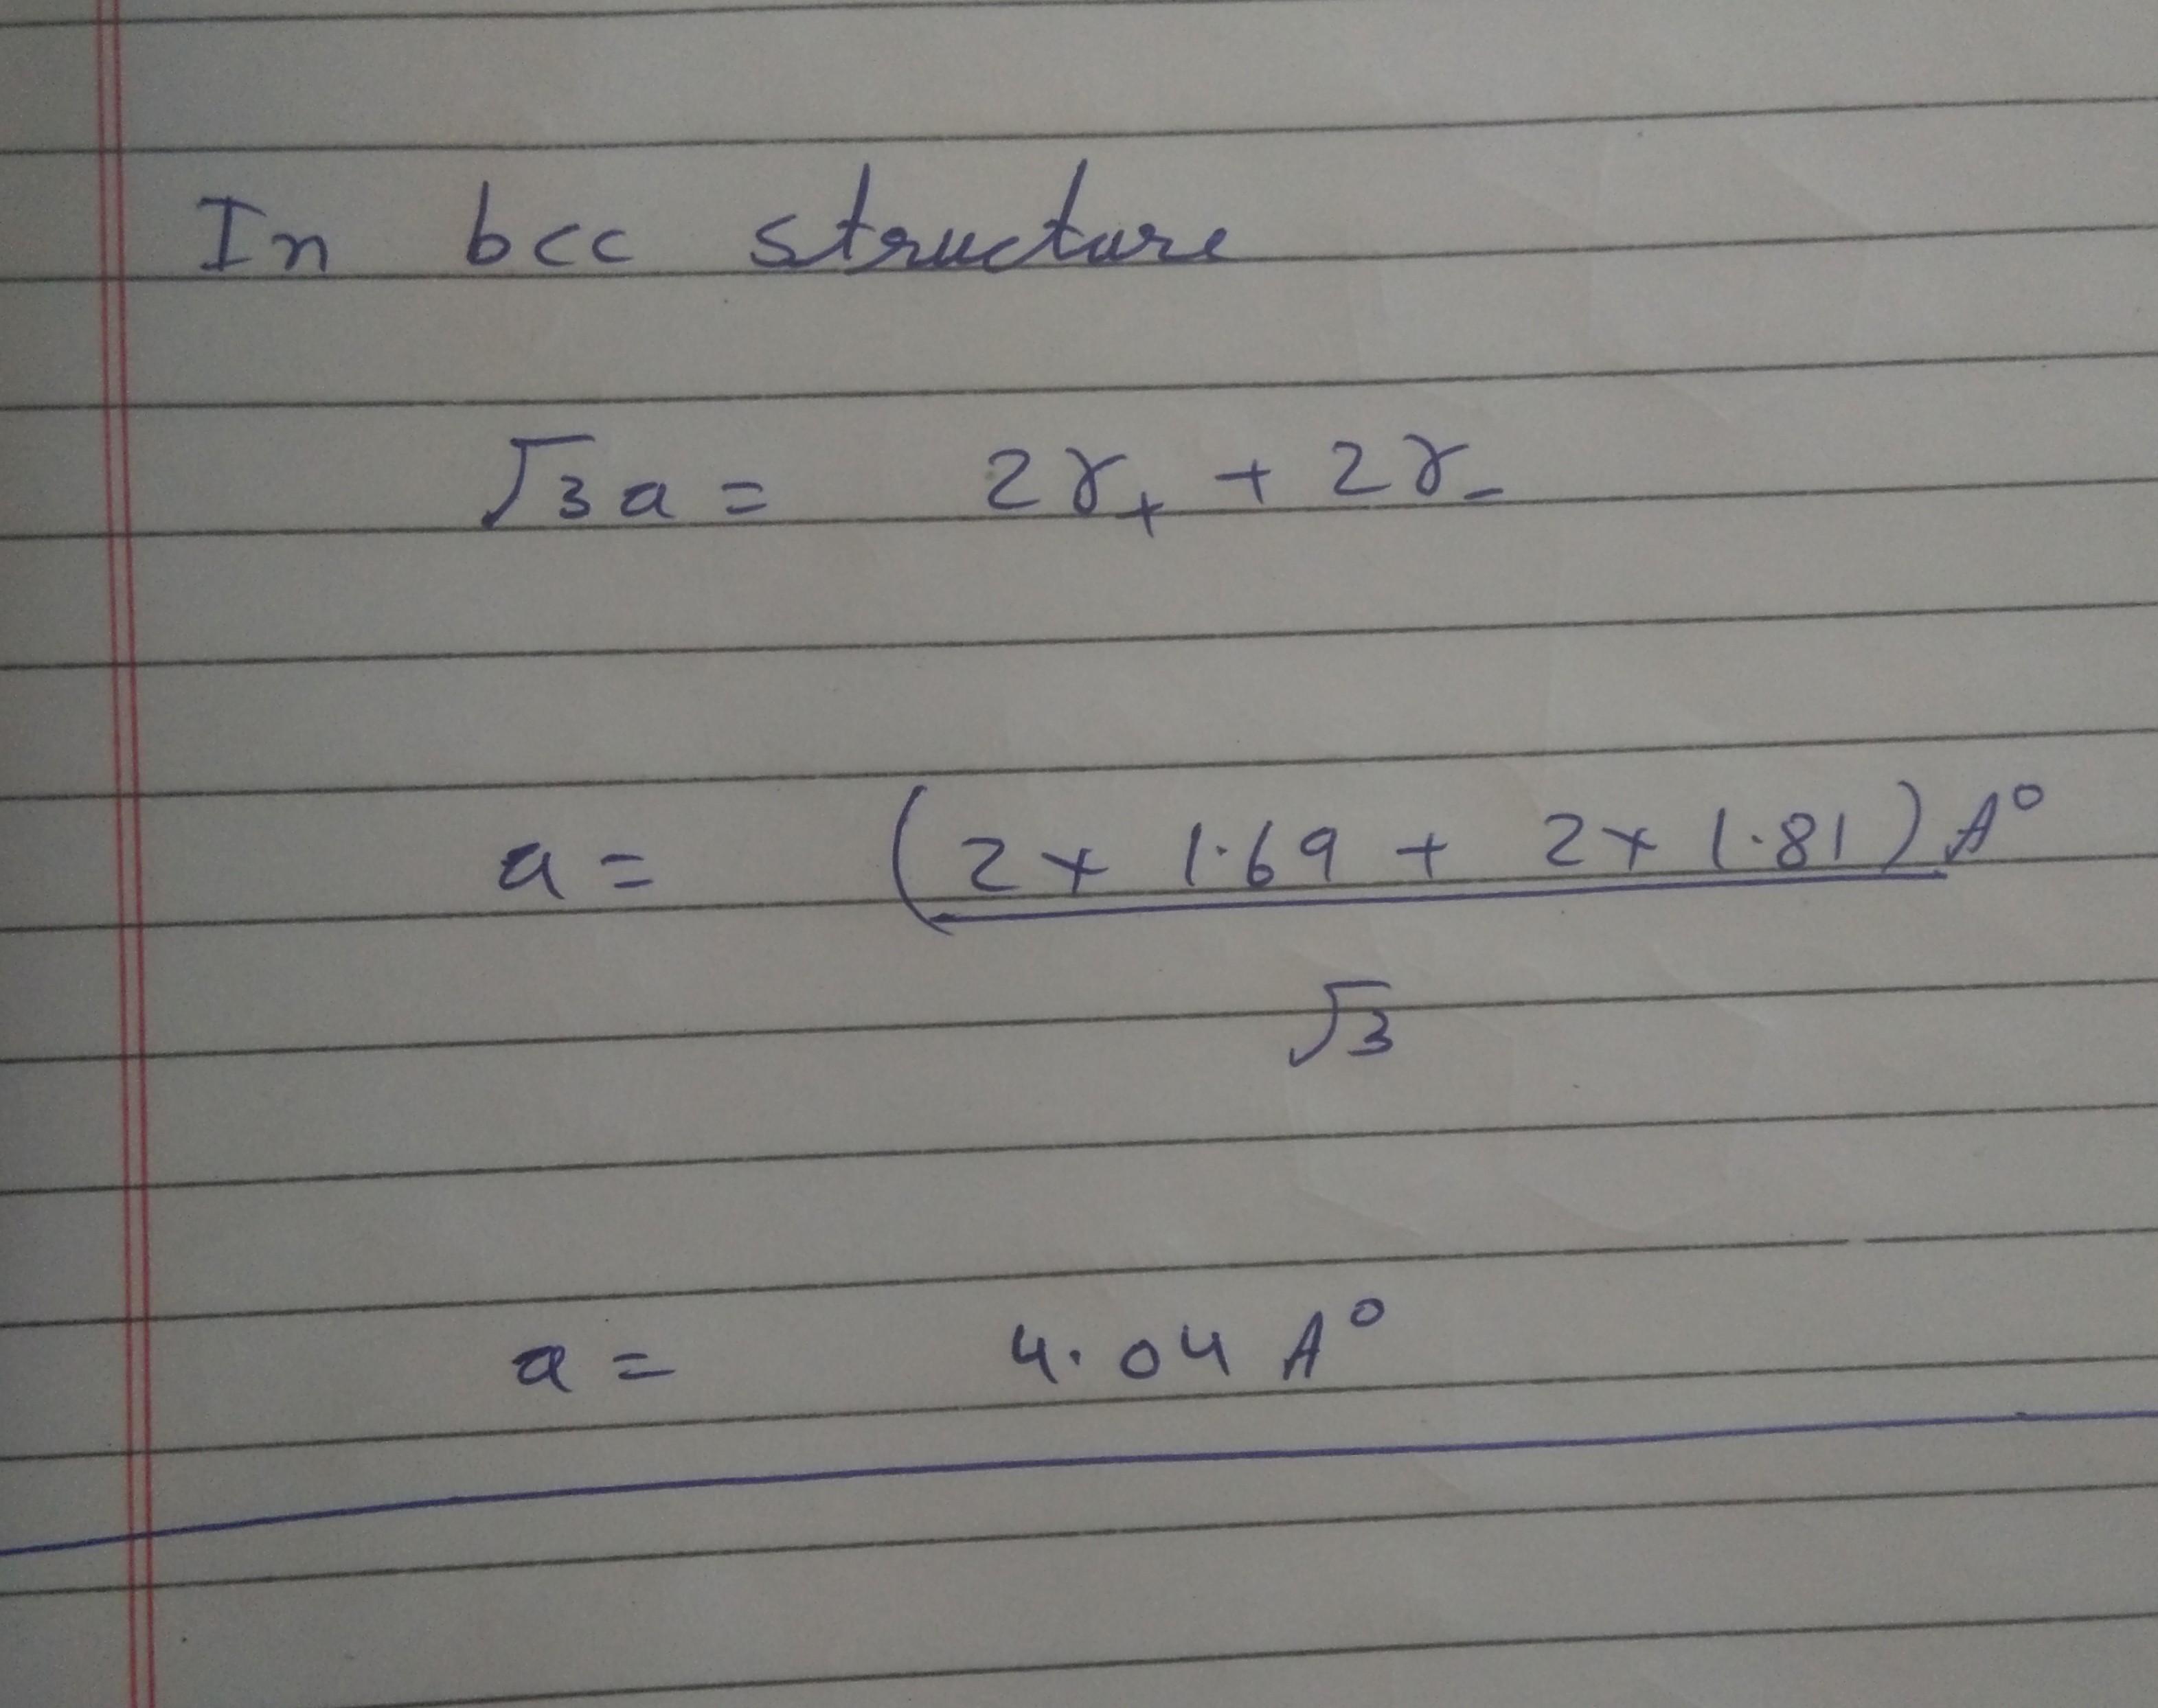 In bcc structure
√3a = 2r₊ + 2r₋
a = (2 × 1.69 + 2 × 1.81) A°
√3
a = 4.04 A°